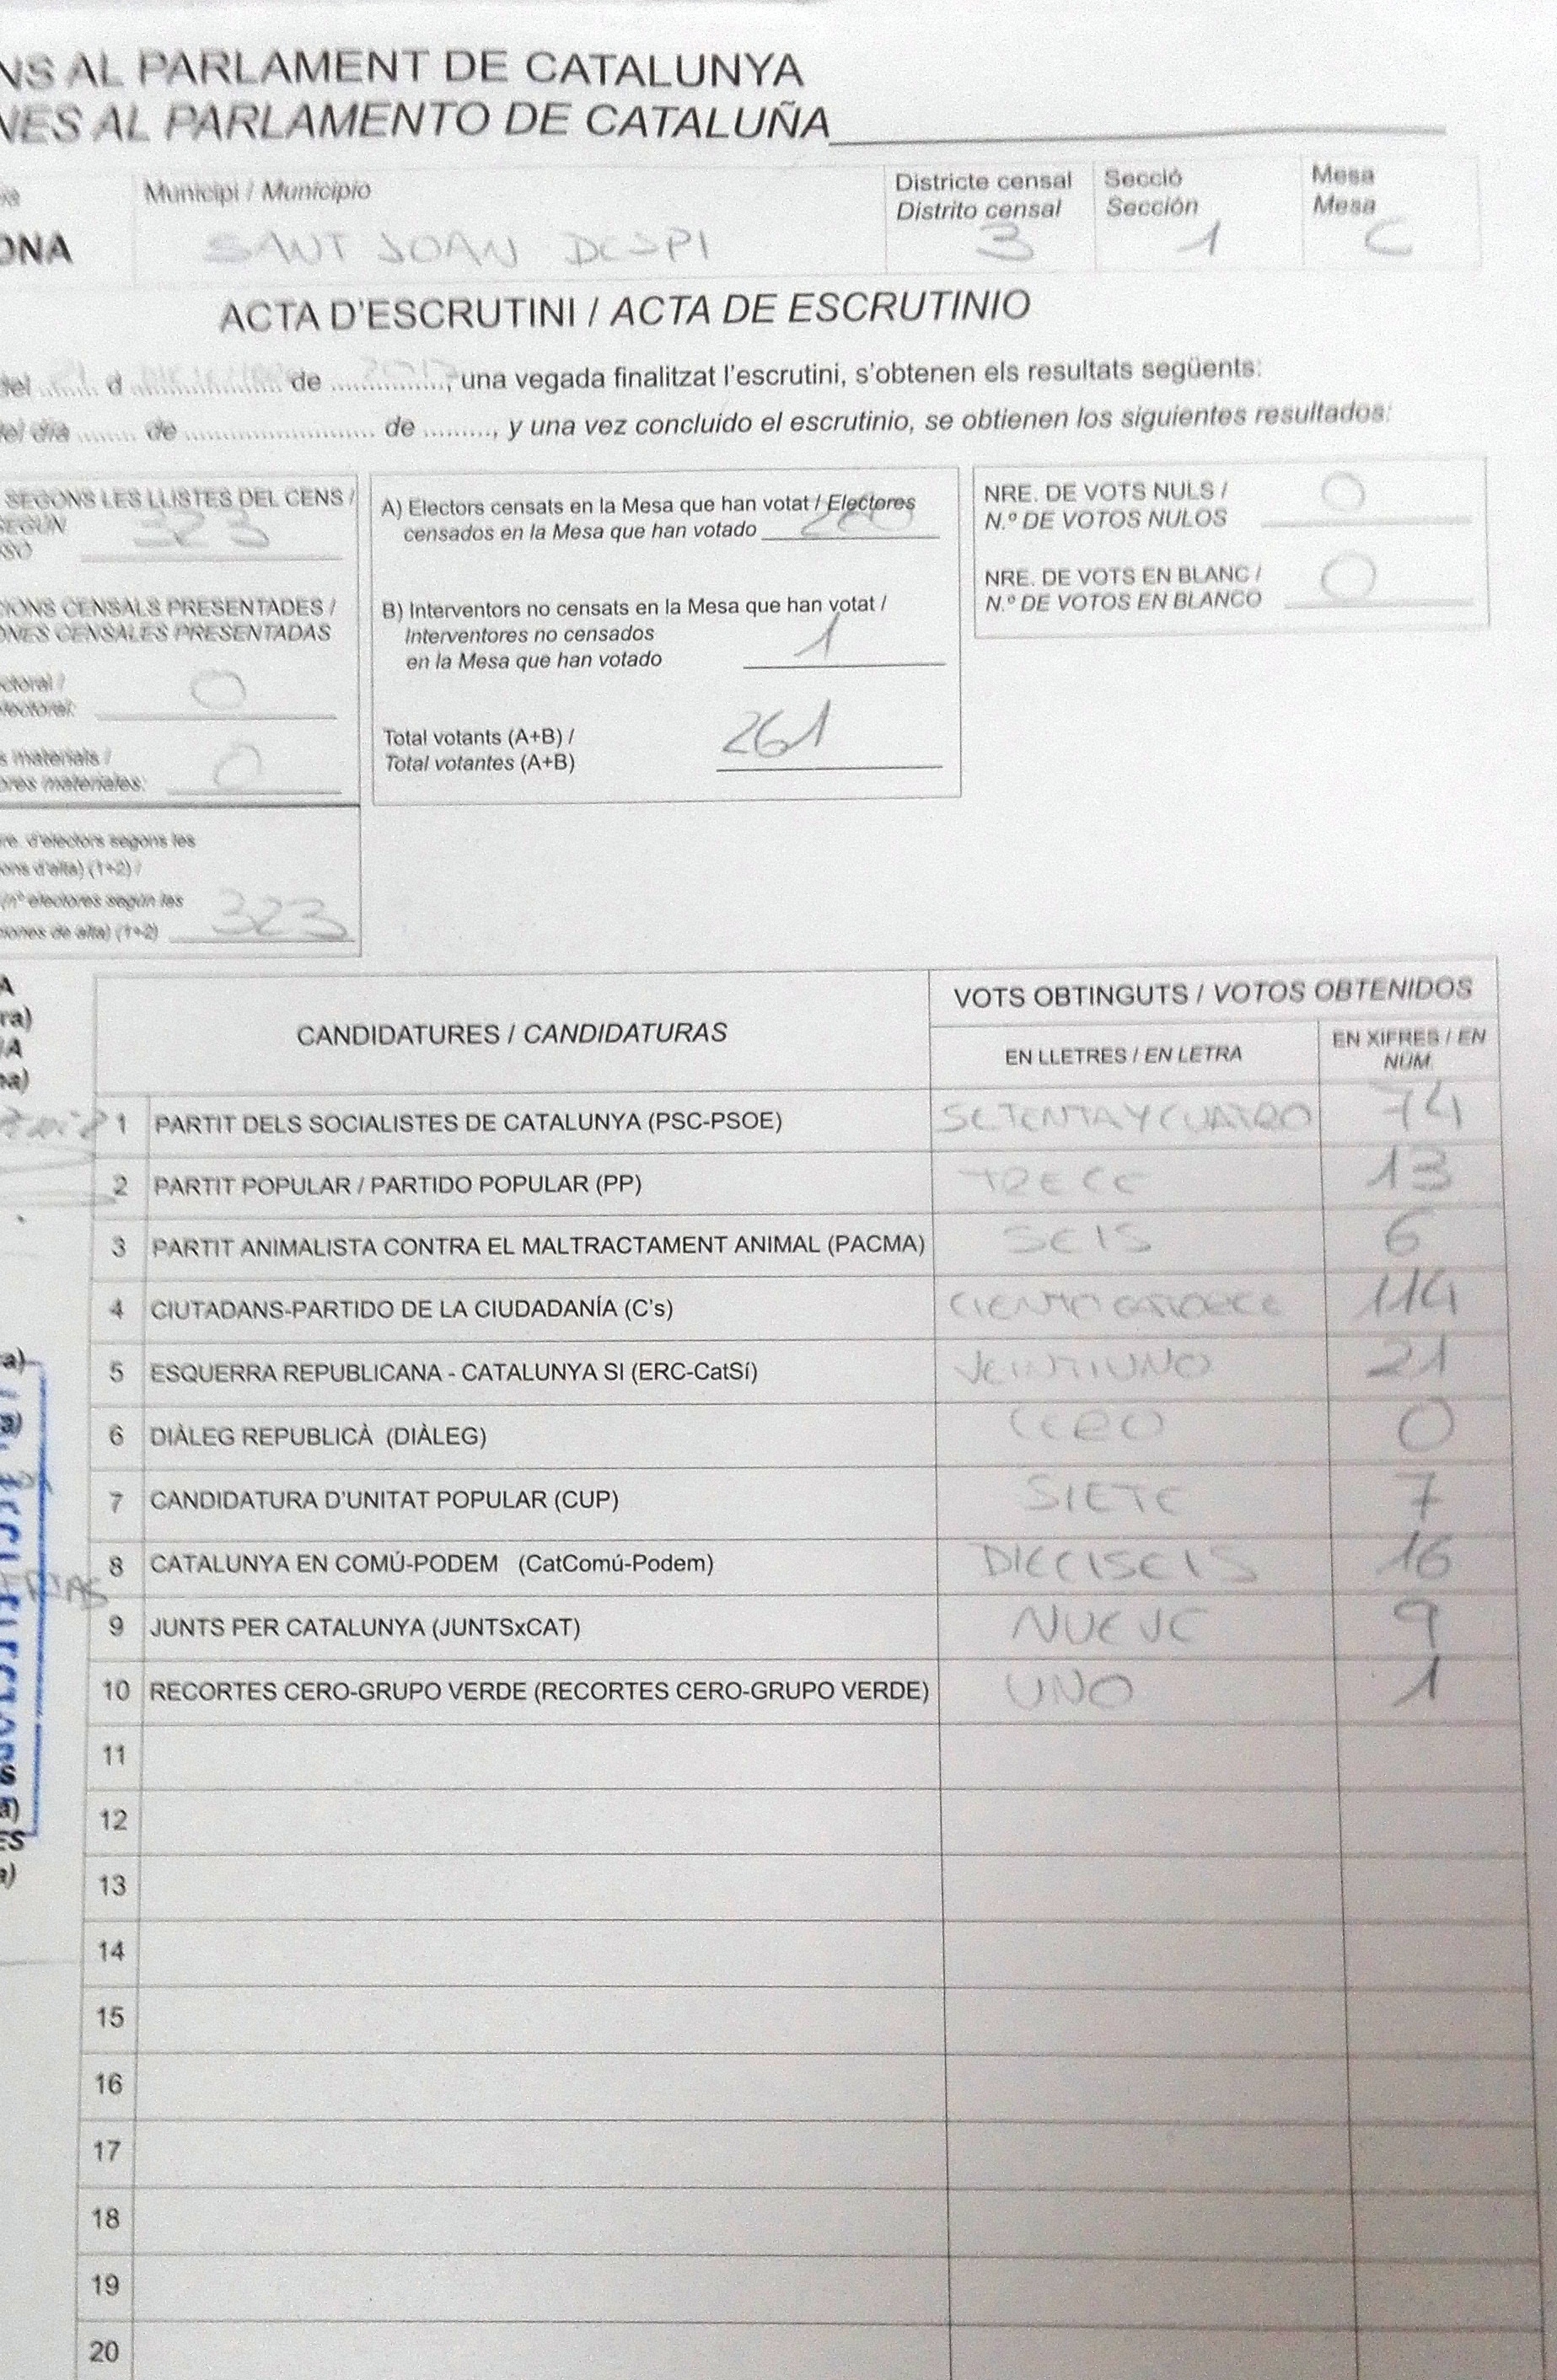 NS AL PARLAMENT DE CATALUNYA
NES AL PARLAMENTO DE CATALUÑA
Municipi / Municipio
Districte censal
Distrito censal
Secció
Sección
Mesa
Mesa
ONA
SANT JOAN DESPI
3
1
C
ACTA D'ESCRUTINI / ACTA DE ESCRUTINIO
del ........ d ...................... de ................, una vegada finalitzat l'escrutini, s'obtenen els resultats següents:
del día ........ de .......................... de ........., y una vez concluido el escrutinio, se obtienen los siguientes resultados:
SEGONS LES LLISTES DEL CENS /
SEGÚN
323
IONS CENSALS PRESENTADES /
ONES CENSALES PRESENTADAS
ctoral /
lectoral:
0
s materials /
ores materiales:
0
re. d'electors segons les
ons d'alta) (1+2) /
(nº electores según las
iones de alta) (1+2)
323
A) Electors censats en la Mesa que han votat / Electores
censados en la Mesa que han votado
260
B) Interventors no censats en la Mesa que han votat /
Interventores no censados
en la Mesa que han votado
1
Total votants (A+B) /
Total votantes (A+B)
261
NRE. DE VOTS NULS /
N.º DE VOTOS NULOS
0
NRE. DE VOTS EN BLANC /
N.º DE VOTOS EN BLANCO
0
CANDIDATURES / CANDIDATURAS
VOTS OBTINGUTS / VOTOS OBTENIDOS
EN LLETRES / EN LETRA
EN XIFRES / EN
NÚM.
1 PARTIT DELS SOCIALISTES DE CATALUNYA (PSC-PSOE) SETENTA Y CUATRO 74
2 PARTIT POPULAR / PARTIDO POPULAR (PP) TRECE 13
3 PARTIT ANIMALISTA CONTRA EL MALTRACTAMENT ANIMAL (PACMA) SEIS 6
4 CIUTADANS-PARTIDO DE LA CIUDADANÍA (C's) CIENTO CATORCE 114
5 ESQUERRA REPUBLICANA - CATALUNYA SI (ERC-CatSí) VEINTIUNO 21
6 DIÀLEG REPUBLICÀ (DIÀLEG) CERO 0
7 CANDIDATURA D'UNITAT POPULAR (CUP) SIETE 7
8 CATALUNYA EN COMÚ-PODEM (CatComú-Podem) DIECISEIS 16
9 JUNTS PER CATALUNYA (JUNTSxCAT) NUEVE 9
10 RECORTES CERO-GRUPO VERDE (RECORTES CERO-GRUPO VERDE) UNO 1
11
12
13
14
15
16
17
18
19
20